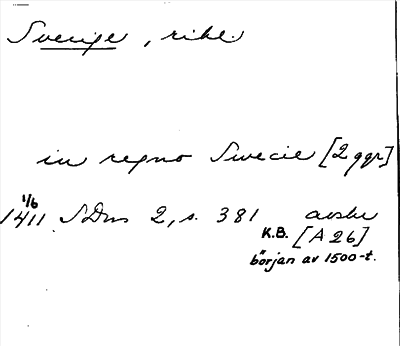 Sverige, rike.
in regno Swecie [2 ggr]
1/6
1411 SDns 2, s. 381 avskr
K.B. [A 26]
början av 1500-t.